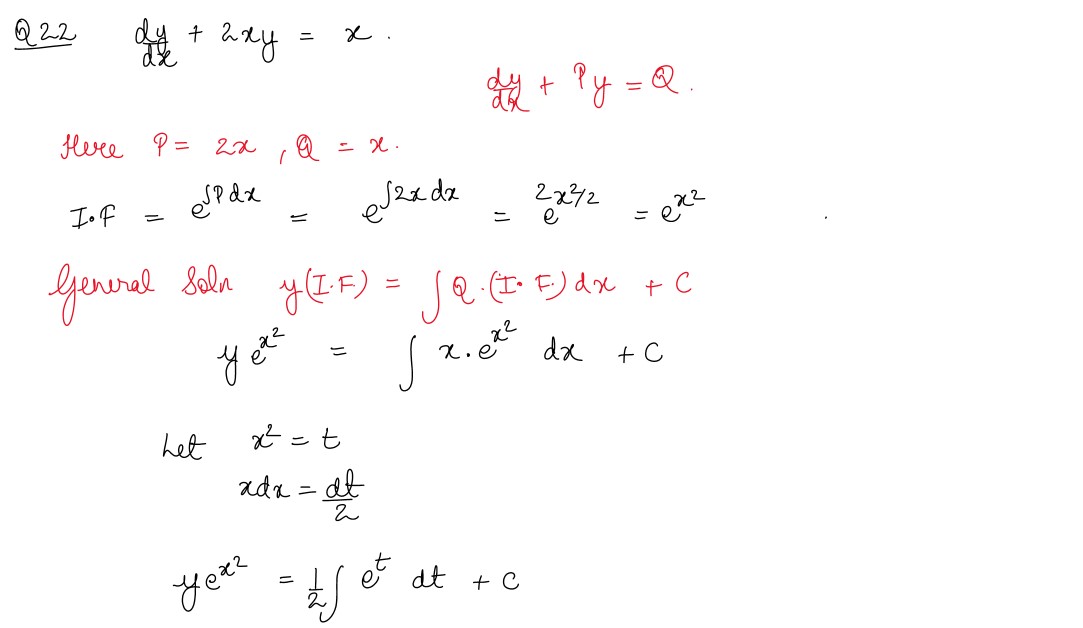 Q22 dy/dx + 2xy = x.
dy/dx + Py = Q.
Here P = 2x, Q = x.
I.F = e^∫Pdx = e^∫2xdx = e^2x²/2 = e^x²
General Soln y(I.F) = ∫Q.(I.F.)dx + C
ye^x² = ∫x.e^x² dx + C
Let x² = t
xdx = dt/2
ye^x² = 1/2∫e^t dt + C